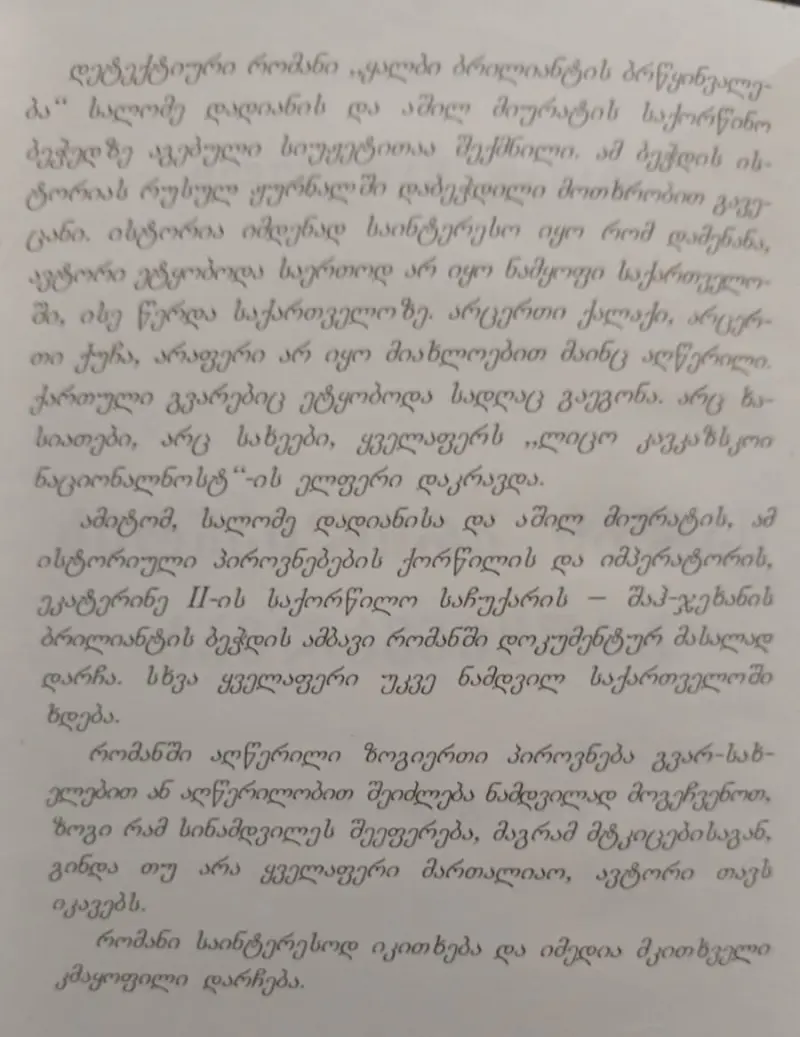 დეტექტიური რომანი „ყალბი ბრილიანტის ბრწყინვალე-
ბა“ სალომე დადიანის და აშილ მიურატის საქორწინო
ბეჭედზე აგებული სიუჟეტითაა შექმნილი. ამ ბეჭდის ის-
ტორიას რუსულ ჟურნალში დაბეჭდილი მოთხრობით გავე-
ცანი. ისტორია იმდენად საინტერესო იყო რომ დამენანა,
ავტორი ეტყობოდა საერთოდ არ იყო ნამყოფი საქართველო-
ში, ისე წერდა საქართველოზე. არცერთი ქალაქი, არცერ-
თი ქუჩა, არაფერი არ იყო მიახლოებით მაინც აღწერილი.
ქართული გვარებიც ეტყობოდა სადღაც გაეგონა. არც ხა-
სიათები, არც სახეები, ყველაფერს „ლიცო კავკაზსკოი
ნაციონალნოსტ“-ის ელფერი დაკრავდა.
ამიტომ, სალომე დადიანისა და აშილ მიურატის, ამ
ისტორიული პიროვნებების ქორწილის და იმპერატორის,
ეკატერინე II-ის საქორწილო საჩუქარის – შაჰ-ჯეხანის
ბრილიანტის ბეჭდის ამბავი რომანში დოკუმენტურ მასალად
დარჩა. სხვა ყველაფერი უკვე ნამდვილ საქართველოში
ხდება.
რომანში აღწერილი ზოგიერთი პიროვნება გვარ-სახ-
ელებით ან აღწერილობით შეიძლება ნამდვილად მოგეჩვენოთ,
ზოგი რამ სინამდვილეს შეეფერება, მაგრამ მტკიცებისაგან,
გინდა თუ არა ყველაფერი მართალიაო, ავტორი თავს
იკავებს.
რომანი საინტერესოდ იკითხება და იმედია მკითხველი
კმაყოფილი დარჩება.